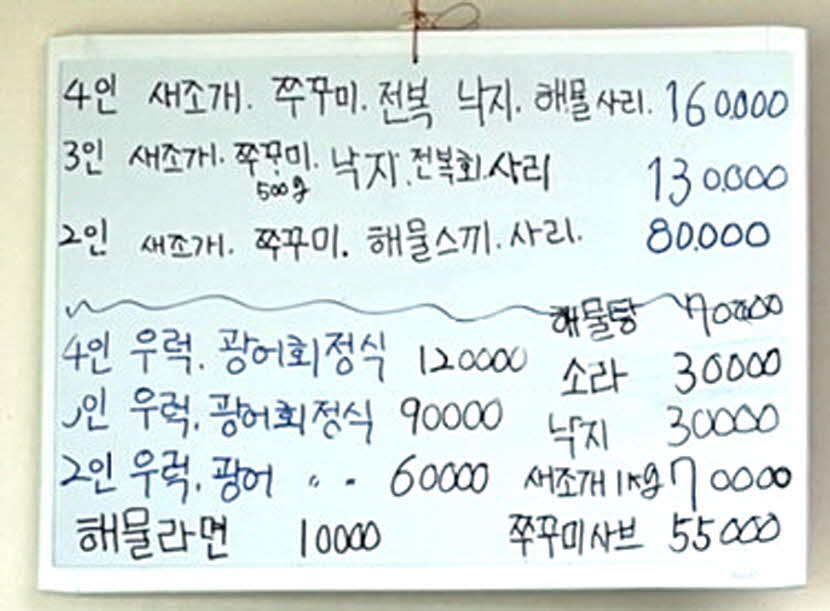 4인 새조개. 쭈꾸미. 전복 낙지. 해물사리. 160.000
3인 새조개. 쭈꾸미. 낙지. 전복회. 사리 130.000
500g
2인 새조개. 쭈꾸미. 해물스끼. 사리. 80.000
해물탕 70000
4인 우럭. 광어회정식 120000
소라 30000
인 우럭. 광어회정식 90000
낙지 30000
2인 우럭. 광어 〃 - 60000
새조개 1kg 70000
해물라면 10000
쭈꾸미사브 55000